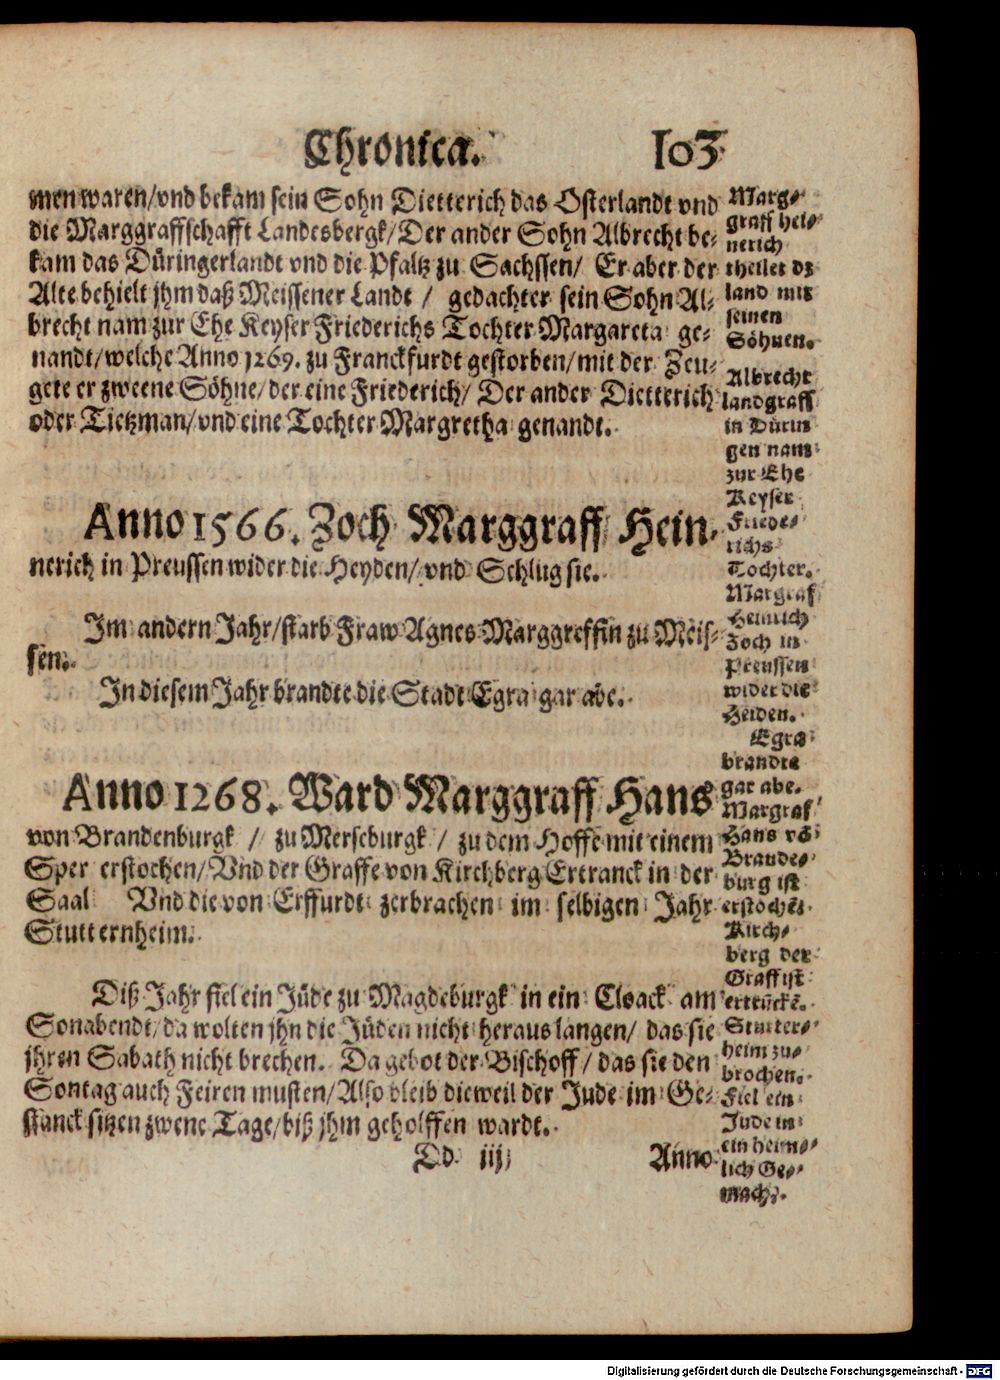 Chronica. 103
men waren/vnd bekam sein Sohn Dietterich das Osterlandt vnd
die Marggraffschafft Landesbergk/Der ander Sohn Albrecht be-
kam das Düringerlandt vnd die Pfaltz zu Sachssen/ Er aber der
Alte behielt jhm daß Meissener Landt / gedachter sein Sohn Al-
brecht nam zur Ehe Keyser Friederichs Tochter Margareta ge-
nandt/welche Anno 1269. zu Franckfurdt gestorben/mit der Zeu-
gete er zweene Söhne/der eine Friederich/ Der ander Dietterich
oder Tietzman/vnd eine Tochter Margretha genandt.
Anno 1566. Zoch Marggraff Hein-
nerich in Preussen wider die Heyden/vnd Schlug sie.
Im andern Jahr/starb Fraw Agnes Marggreffin zu Meis-
sen.
In diesem Jahr brandte die Stadt Egra gar abe.
Anno 1268. Ward Marggraff Hans
von Brandenburgk / zu Merseburgk / zu dem Hoffe mit einem
Sper erstochen/Vnd der Graffe von Kirchberg Ertranck in der
Saal Vnd die von Erffurdt zerbrachen im selbigen Jahr
Stutternheim.
Diß Jahr fiel ein Jüde zu Magdeburgk in ein Cloack am
Sonabendt/da wolten jhn die Jüden nicht heraus langen/ das sie
jhren Sabath nicht brechen. Da gebot der Bischoff/ das sie den
Sontag auch Feiren musten/Also bleib dieweil der Jude im Ge-
stanck sitzen zwene Tage/biß jhm geholffen wardt.
Dd iij Anno
Marg-
graff Hei-
nerich
theilet dz
land mit
seinen
Söhnen.
Albrecht
landgraff
in Dürin
gen nam
zur Ehe
Keyser
Friede-
richs
Tochter.
Margraf
Heinrich
Zoch in
Preussen
wider die
Heiden.
Egra
brandte
gar abe.
Margraf
Hans vō
Brande-
burg ist
erstochē.
Kirch-
berg der
Graff ist
ertrūckē.
Stutter-
heim zu-
brochen.
Fiel ein
Jude in
ein heim-
lich Ge-
mach.
Digitalisierung gefördert durch die Deutsche Forschungsgemeinschaft - DFG